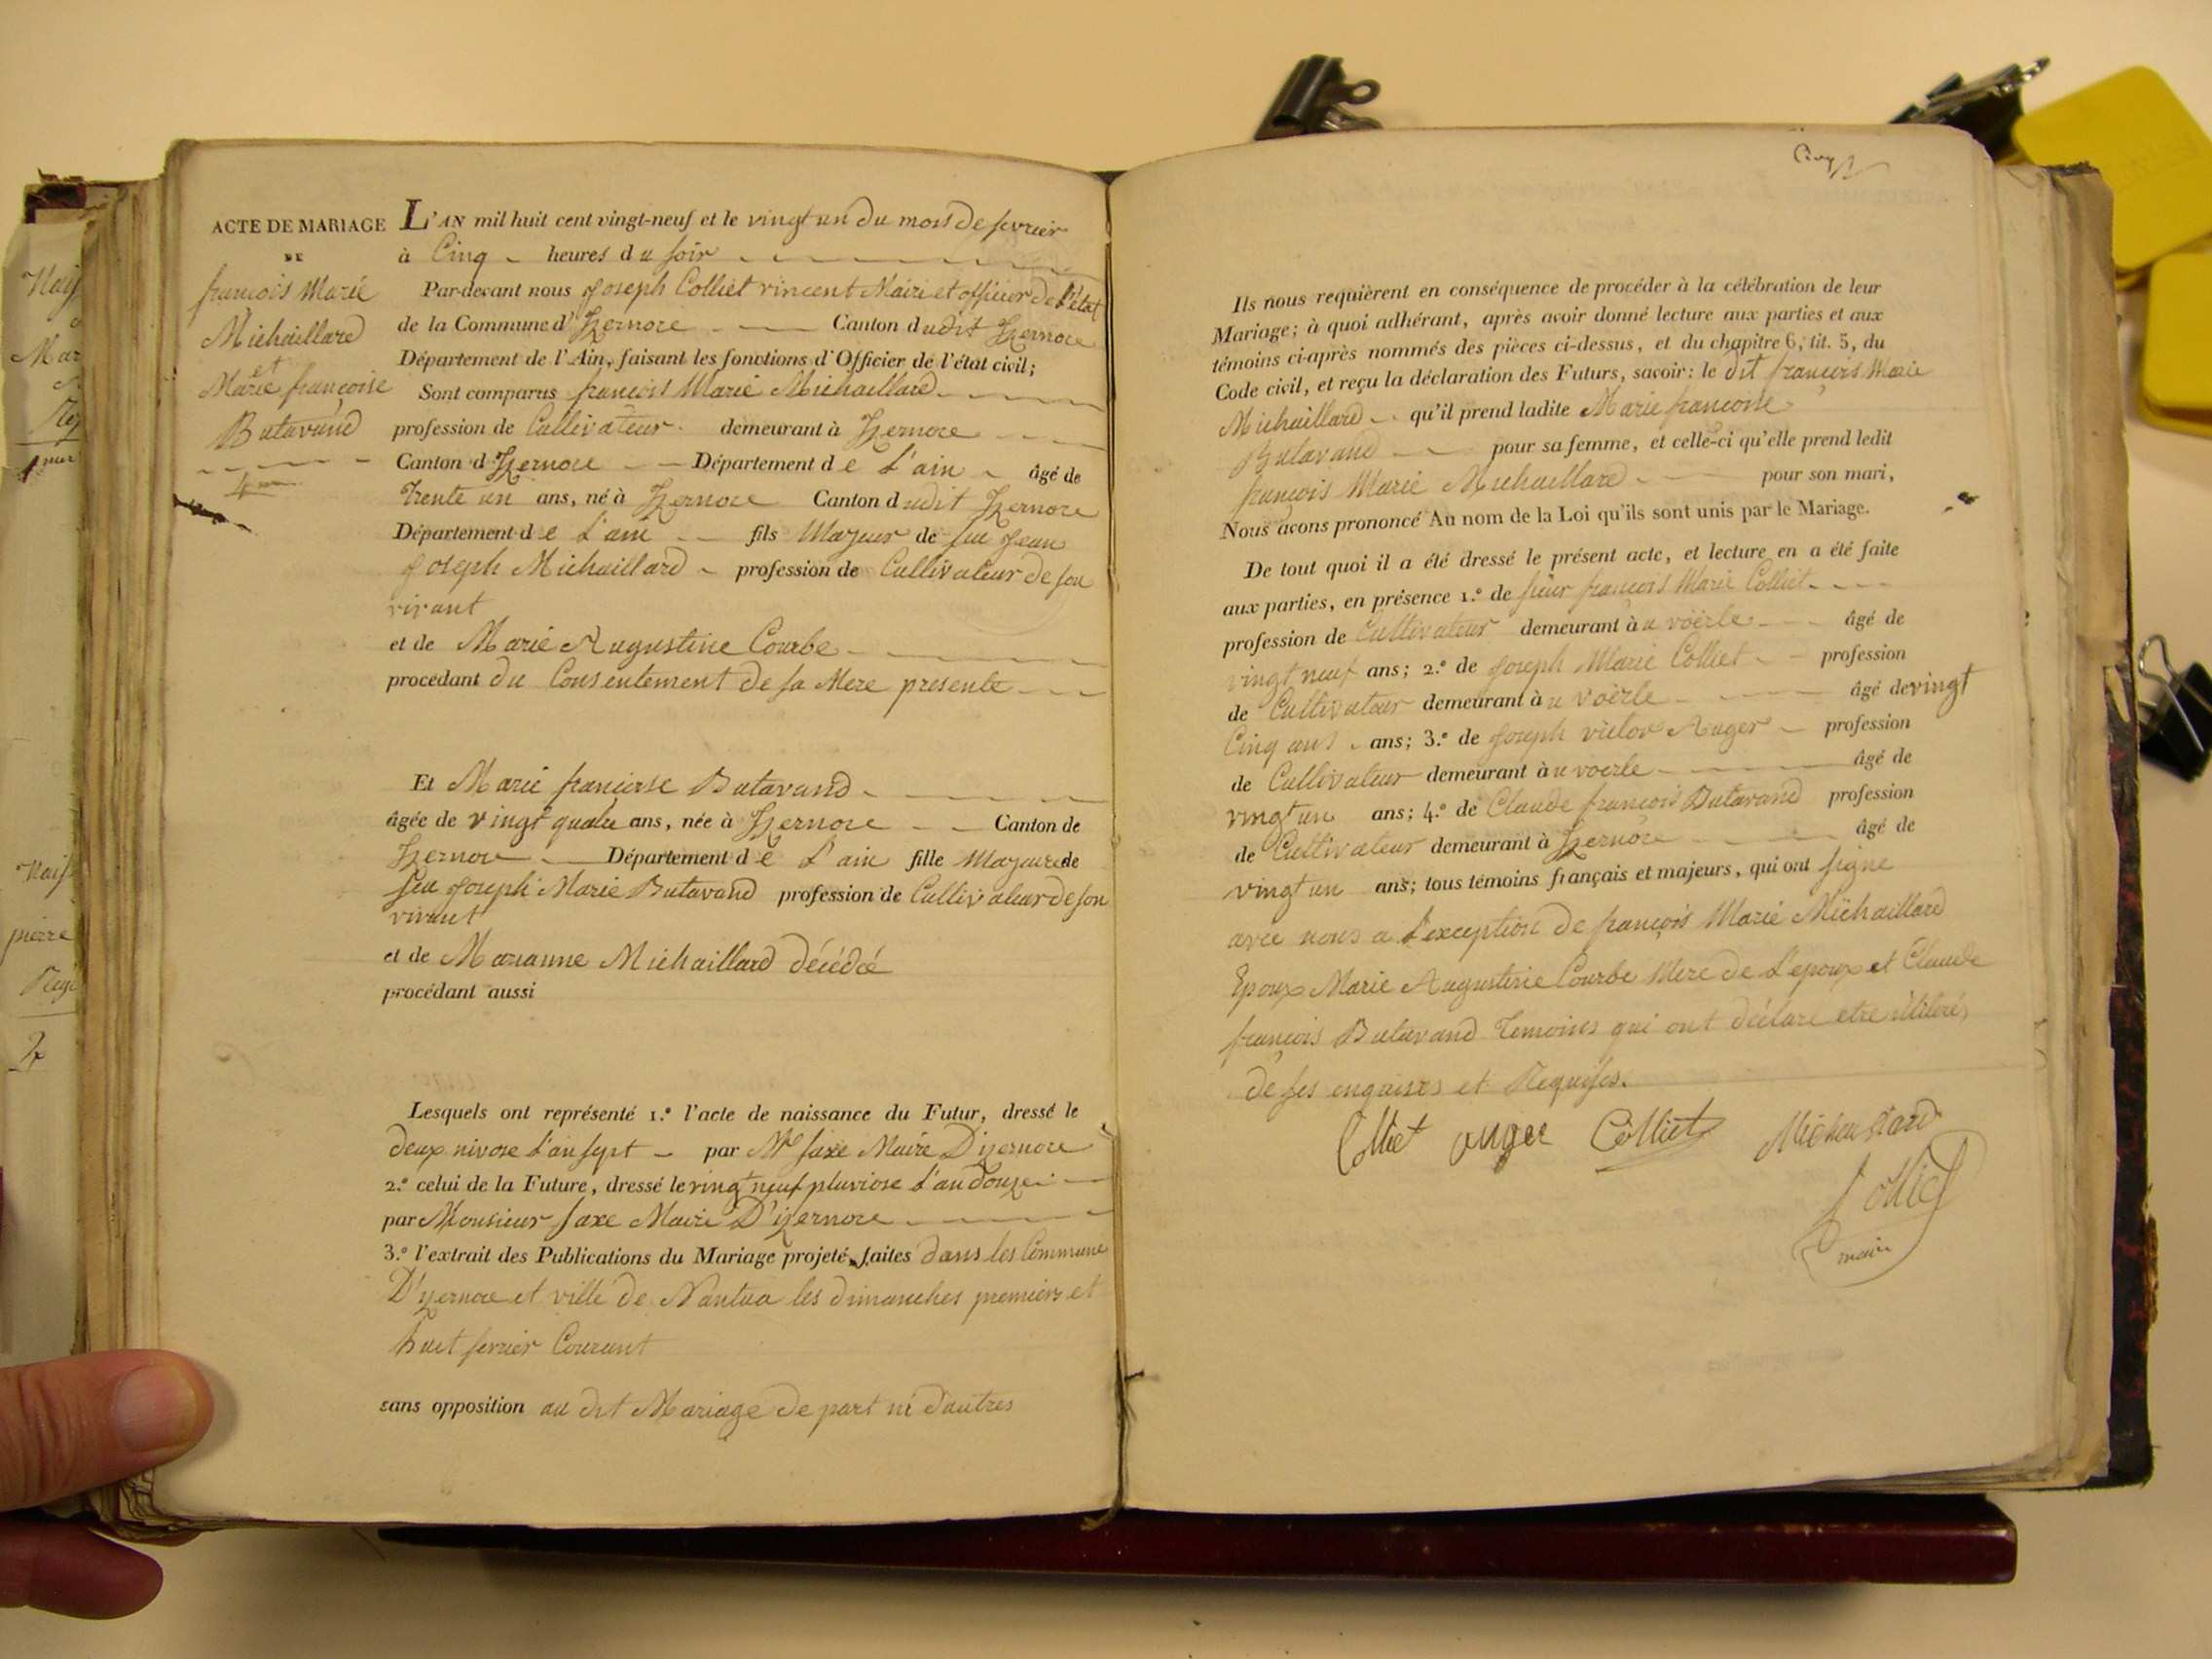 ACTE DE MARIAGE
DE
françois Marie
Michaillard
et
Marie françoise
Butavand
L'AN mil huit cent vingt-neuf et le vingt un du mois de fevrier
à Cinq heures du soir
Par-devant nous Joseph Colliet vincent Maire et officier de l'état
de la Commune d'Izernore Canton dudit Izernore
Département de l'Ain, faisant les fonctions d'Officier de l'état civil;
Sont comparus françois Marie Michaillard
profession de Cultivateur demeurant à Izernore
Canton d'Izernore Département de L'ain âgé de
trente un ans, né à Izernore Canton dudit Izernore
Département de L'ain fils Majeur de feu Jean
Joseph Michaillard profession de Cultivateur de son
vivant
et de Marie Augustine Courbe
procédant du Consentement de sa Mere presente
Et Marie francoise Butavand
âgée de vingt quatre ans, née à Izernore Canton de
Izernore Département de L'ain fille Majeure de
feu Joseph Marie Butavand profession de Cultivateur de son
vivant
et de Marianne Michaillard décédée
procédant aussi
Lesquels ont représenté 1.º l'acte de naissance du Futur, dressé le
deux nivose L'an sept par Mr Saxe Maire D'izernore
2.º celui de la Future, dressé le vingt neuf pluviose L'an douze
par Monsieur Saxe Maire D'izernore
3.º l'extrait des Publications du Mariage projeté, faites dans les Commune
D'izernore et ville de Nantua les dimanches premiers et
huit fevrier Courant
sans opposition au dit Mariage de part ni d'autres
Ils nous requièrent en conséquence de procéder à la célébration de leur
Mariage; à quoi adhérant, après avoir donné lecture aux parties et aux
témoins ci-après nommés des pièces ci-dessus, et du chapitre 6, tit. 5, du
Code civil, et reçu la déclaration des Futurs, savoir: le dit françois Marie
Michaillard qu'il prend ladite Marie francoise
Butavand pour sa femme, et celle-ci qu'elle prend ledit
françois Marie Michaillard pour son mari,
Nous avons prononcé Au nom de la Loi qu'ils sont unis par le Mariage.
De tout quoi il a été dressé le présent acte, et lecture en a été faite
aux parties, en présence 1.º de sieur françois Marie Colliet
profession de Cultivateur demeurant à u voërle âgé de
vingt neuf ans; 2.º de Joseph Marie Colliet profession
de Cultivateur demeurant à u voërle âgé de vingt
Cinq ans ans; 3.º de Joseph victor Auger profession
de Cultivateur demeurant à u voerle âgé de
vingt un ans; 4.º de Claude françois Butavand profession
de Cultivateur demeurant à Izernore âgé de
vingt un ans; tous témoins français et majeurs, qui ont signe
avec nous a L'exception de françois Marie Michaillard
Epoux Marie Augustine Courbe Mere de L'epoux et Claude
françois Butavand Temoins qui ont déclaré etre illiteré
de ses enquises et Requises.
Colliet auger Colliet Michaillard
Colliet
maire